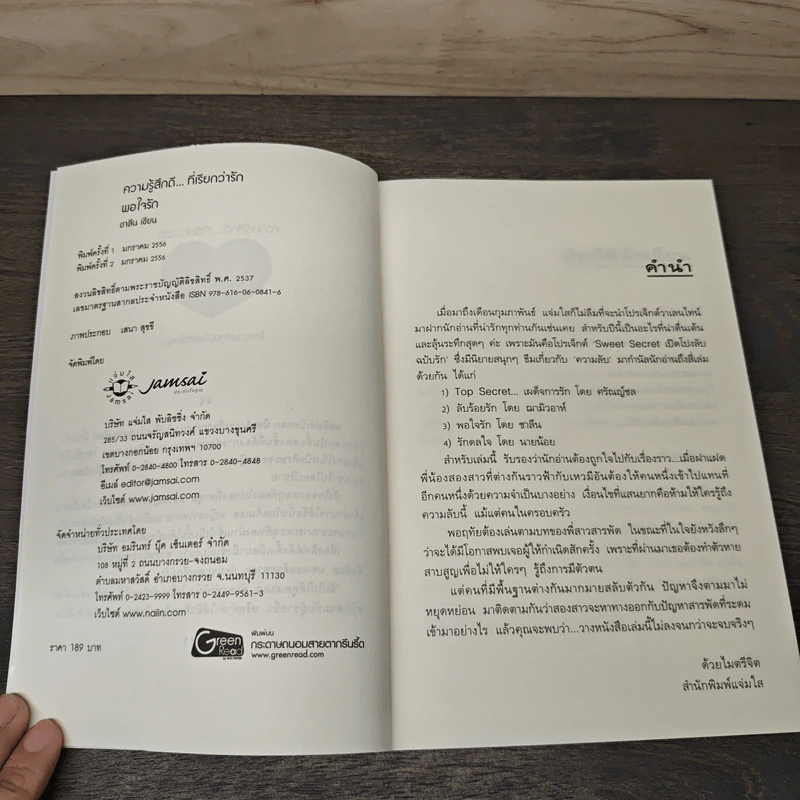 ความรู้สึกดี... ที่เรียกว่ารัก
พอใจรัก
ชาลีน เขียน
พิมพ์ครั้งที่ 1 มกราคม 2556
พิมพ์ครั้งที่ 2 มกราคม 2556
สงวนลิขสิทธิ์ตามพระราชบัญญัติลิขสิทธิ์ พ.ศ. 2537
เลขมาตรฐานสากลประจำหนังสือ ISBN 978-616-06-0841-6
ภาพประกอบ เสนา สุขรี
จัดพิมพ์โดย
แจ่มใส
Jamsai
Jamsai
บริษัท แจ่มใส พับลิชชิ่ง จำกัด
285/33 ถนนจรัญสนิทวงศ์ แขวงบางขุนศรี
เขตบางกอกน้อย กรุงเทพฯ 10700
โทรศัพท์ 0-2840-4800 โทรสาร 0-2840-4848
อีเมล์ editor@jamsai.com
เว็บไซต์ www.jamsai.com
จัดจำหน่ายทั่วประเทศโดย
บริษัท อมรินทร์ บุ๊ค เซ็นเตอร์ จำกัด
108 หมู่ที่ 2 ถนนบางกรวย-จงถนอม
ตำบลมหาสวัสดิ์ อำเภอบางกรวย จ.นนทบุรี 11130
โทรศัพท์ 0-2423-9999 โทรสาร 0-2449-9561-3
เว็บไซต์ www.naiin.com
ราคา 189 บาท
Green Read
พิมพ์บน
กระดาษถนอมสายตากรีนรี้ด
www.greenread.com
คำนำ
เมื่อมาถึงเดือนกุมภาพันธ์ แจ่มใสก็ไม่ลืมที่จะนำโปรเจ็กต์วาเลนไทน์
มาฝากนักอ่านที่น่ารักทุกท่านกันเช่นเคย สำหรับปีนี้เป็นอะไรที่น่าตื่นเต้น
และลุ้นระทึกสุดๆ ค่ะ เพราะมันคือโปรเจ็กต์ 'Sweet Secret เปิดโปงลับ
ฉบับรัก' ซึ่งมีนิยายสนุกๆ ธีมเกี่ยวกับ 'ความลับ' มากำนัลนักอ่านถึงสี่เล่ม
ด้วยกัน ได้แก่
1) Top Secret... เผด็จการรัก โดย ศรัณญ์ชล
2) ลับร้อยรัก โดย ฌามิวอาห์
3) พอใจรัก โดย ชาลีน
4) รักดลใจ โดย นายน้อย
สำหรับเล่มนี้ รับรองว่านักอ่านต้องถูกใจไปกับเรื่องราว...เมื่อฝาแฝด
พี่น้องสองสาวที่ต่างกันราวฟ้ากับเหวมีอันต้องให้คนหนึ่งเข้าไปแทนที่
อีกคนหนึ่งด้วยความจำเป็นบางอย่าง เงื่อนไขที่แสนยากคือห้ามให้ใครรู้ถึง
ความลับนี้ แม้แต่คนในครอบครัว
พอฤทัยต้องเล่นตามบทของพี่สาวสารพัด ในขณะที่ในใจยังหวังลึกๆ
ว่าจะได้มีโอกาสพบเจอผู้ให้กำเนิดสักครั้ง เพราะที่ผ่านมาเธอต้องทำตัวหาย
สาบสูญเพื่อไม่ให้ใครๆ รู้ถึงการมีตัวตน
แต่คนที่มีพื้นฐานต่างกันมากมายสลับตัวกัน ปัญหาจึงตามมาไม่
หยุดหย่อน มาติดตามกันว่าสองสาวจะหาทางออกกับปัญหาสารพัดที่ระดม
เข้ามาอย่างไร แล้วคุณจะพบว่า...วางหนังสือเล่มนี้ไม่ลงจนกว่าจะจบจริงๆ
ด้วยไมตรีจิต
สำนักพิมพ์แจ่มใส